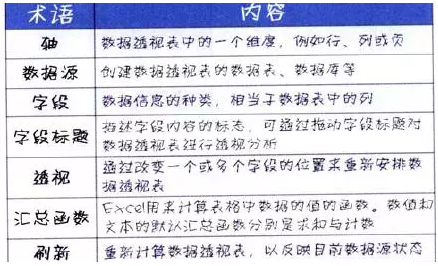 术语 内容
轴 数据透视表中的一个维度，例如行、列或页
数据源 创建数据透视表的数据表、数据库等
字段 数据信息的种类，相当于数据表中的列
字段标题 描述字段内容的标志，可通过拖动字段标题对
数据透视表进行透视分析
透视 通过改变一个或多个字段的位置来重新安排数
据透视表
汇总函数 Excel用来计算表格中数据的值的函数。数值和
文本的默认汇总函数分别是求和与计数
刷新 重新计算数据透视表，以反映目前数据源状态